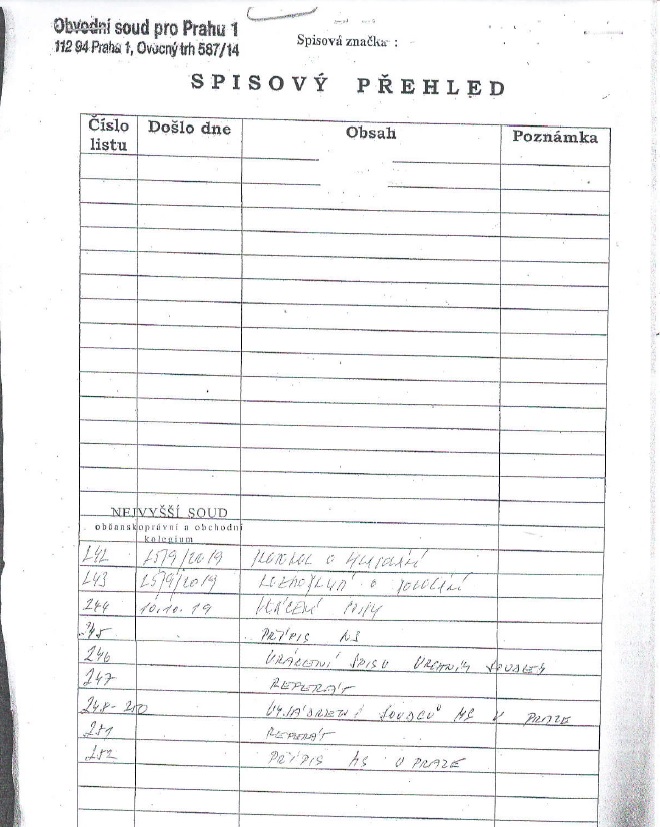 Obvodní soud pro Prahu 1
112 94 Praha 1, Ovocný trh 587/14
Spisová značka :
SPISOVÝ PŘEHLED
Číslo listu Došlo dne Obsah Poznámka
NEJVYŠŠÍ SOUD
občanskoprávní a obchodní
kolegium
242 25/9/2019 o hlasování
243 25/9/2019 o
244 10.10.19 vrácení
245 PŘÍPIS NS
246 VRÁCENÍ SPISU VRCHNÍM SOUDEM
247 REFERÁT
248-250 VYJÁDŘENÍ SOUDCŮ MS V PRAZE
251 REFERÁT
252 PŘÍPIS MS V PRAZE